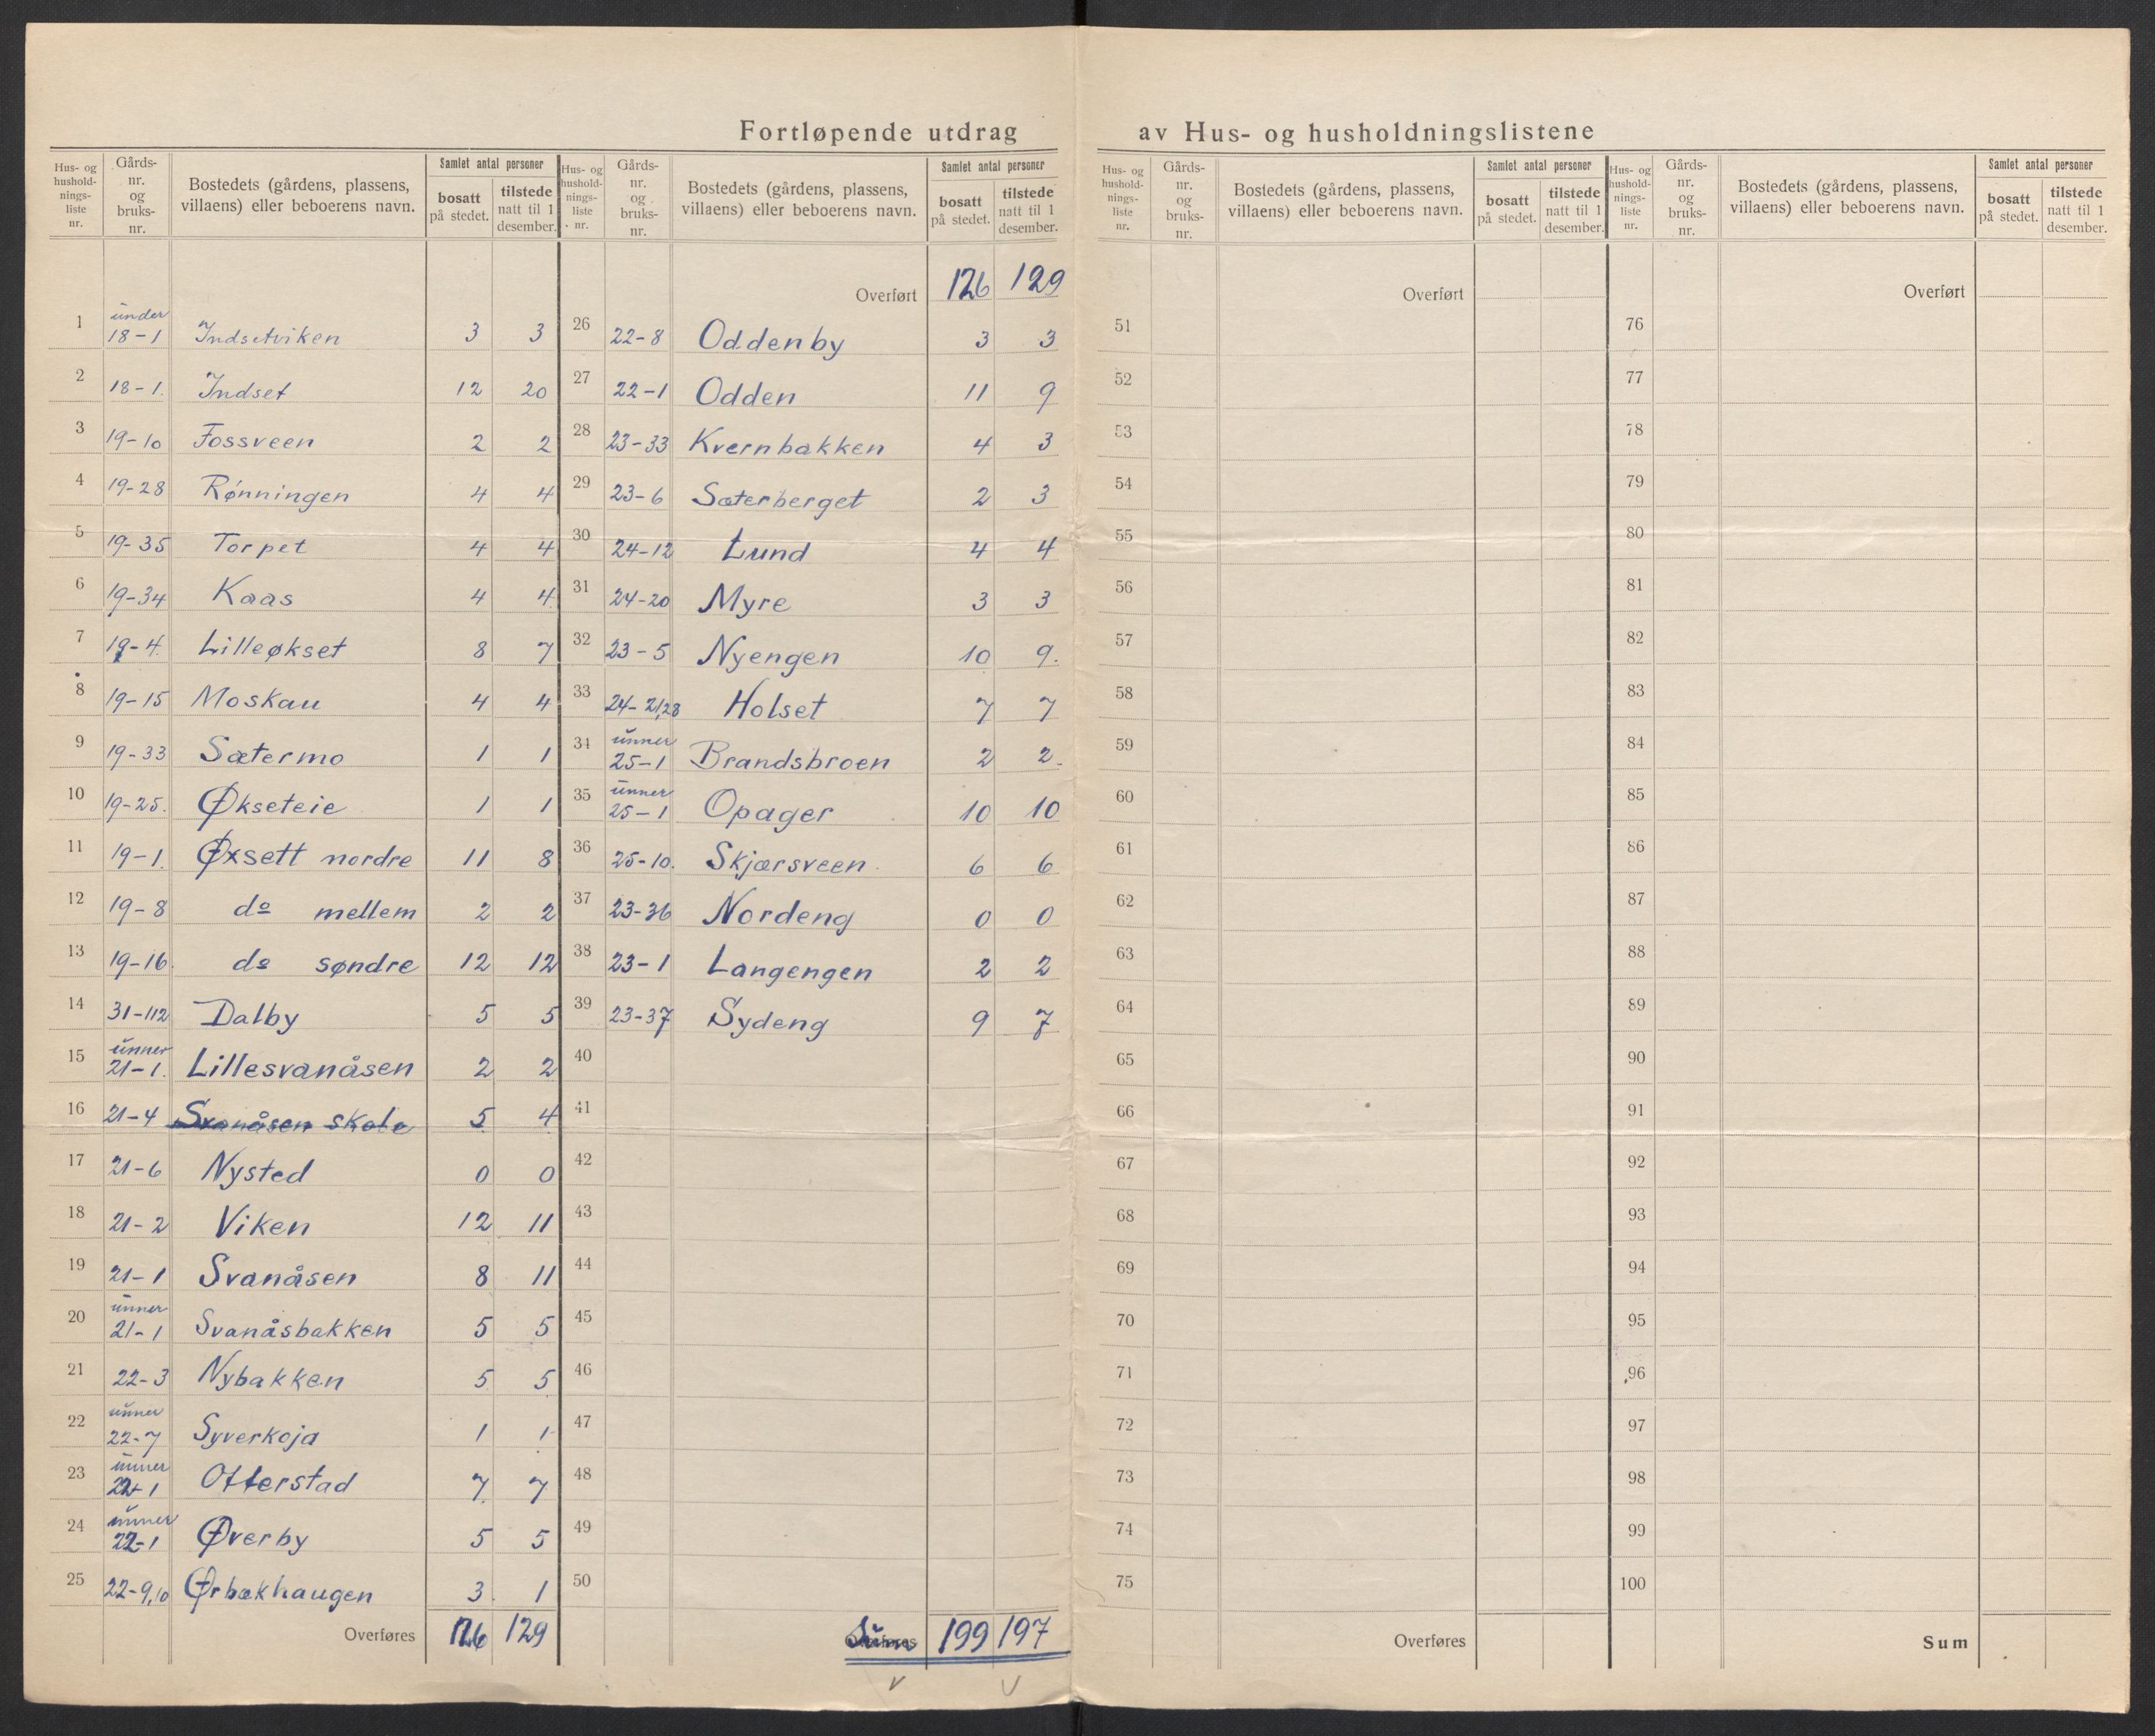 Fortløpende utdrag av Hus- og husholdningslistene
Hus- og husholdnings-liste nr. | Gårds-nr. og bruks-nr. | Bostedets (gårdens, plassens, villaens) eller beboerens navn. | Samlet antal personer bosatt på stedet. | tilstede natt til 1 desember.
1 under 18-1 Indsetviken 3 3
2 18-1. Indset 12 20
3 19-10 Fossveen 2 2
4 19-28 Rønningen 4 4
5 19-35 Torpet 4 4
6 19-34 Kaas 4 4
7 19-4. Lilleøkset 8 7
8 19-15 Moskau 4 4
9 19-33 Sætermo 1 1
10 19-25. Økseteie 1 1
11 19-1. Øxsett nordre 11 8
12 19-8 do mellem 2 2
13 19-16. do søndre 12 12
14 31-112 Dalby 5 5
15 unner 21-1. Lillesvanåsen 2 2
16 21-4 Svanåsen skole 5 4
17 21-6 Nysted 0 0
18 21-2 Viken 12 11
19 21-1 Svanåsen 8 11
20 unner 21-1 Svanåsbakken 5 5
21 22-3 Nybakken 5 5
22 unner 22-7 Syverkoja 1 1
23 unner 22-1 Otterstad 7 7
24 unner 22-1 Øverby 5 5
25 22-9,10 Ørbækhaugen 3 1
Overføres 126 129
Hus- og husholdnings-liste nr. | Gårds-nr. og bruks-nr. | Bostedets (gårdens, plassens, villaens) eller beboerens navn. | Samlet antal personer bosatt på stedet. | tilstede natt til 1 desember.
Overført 126 129
26 22-8 Oddenby 3 3
27 22-1 Odden 11 9
28 23-33 Kvernbakken 4 3
29 23-6 Sæterberget 2 3
30 24-12 Lund 4 4
31 24-20 Myre 3 3
32 23-5 Nyengen 10 9.
33 24-21,28 Holset 7 7
34 unner 25-1 Brandsbroen 2 2.
35 unner 25-1 Opager 10 10
36 25-10. Skjærsveen 6 6
37 23-36 Nordeng 0 0
38 23-1 Langengen 2 2
39 23-37 Sydeng 9 7
40
41
42
43
44
45
46
47
48
49
50
Overføres Sum 199 197
Hus- og husholdnings-liste nr. | Gårds-nr. og bruks-nr. | Bostedets (gårdens, plassens, villaens) eller beboerens navn. | Samlet antal personer bosatt på stedet. | tilstede natt til 1 desember.
Overført
51
52
53
54
55
56
57
58
59
60
61
62
63
64
65
66
67
68
69
70
71
72
73
74
75
Overføres
Hus- og husholdnings-liste nr. | Gårds-nr. og bruks-nr. | Bostedets (gårdens, plassens, villaens) eller beboerens navn. | Samlet antal personer bosatt på stedet. | tilstede natt til 1 desember.
Overført
76
77
78
79
80
81
82
83
84
85
86
87
88
89
90
91
92
93
94
95
96
97
98
99
100
Sum